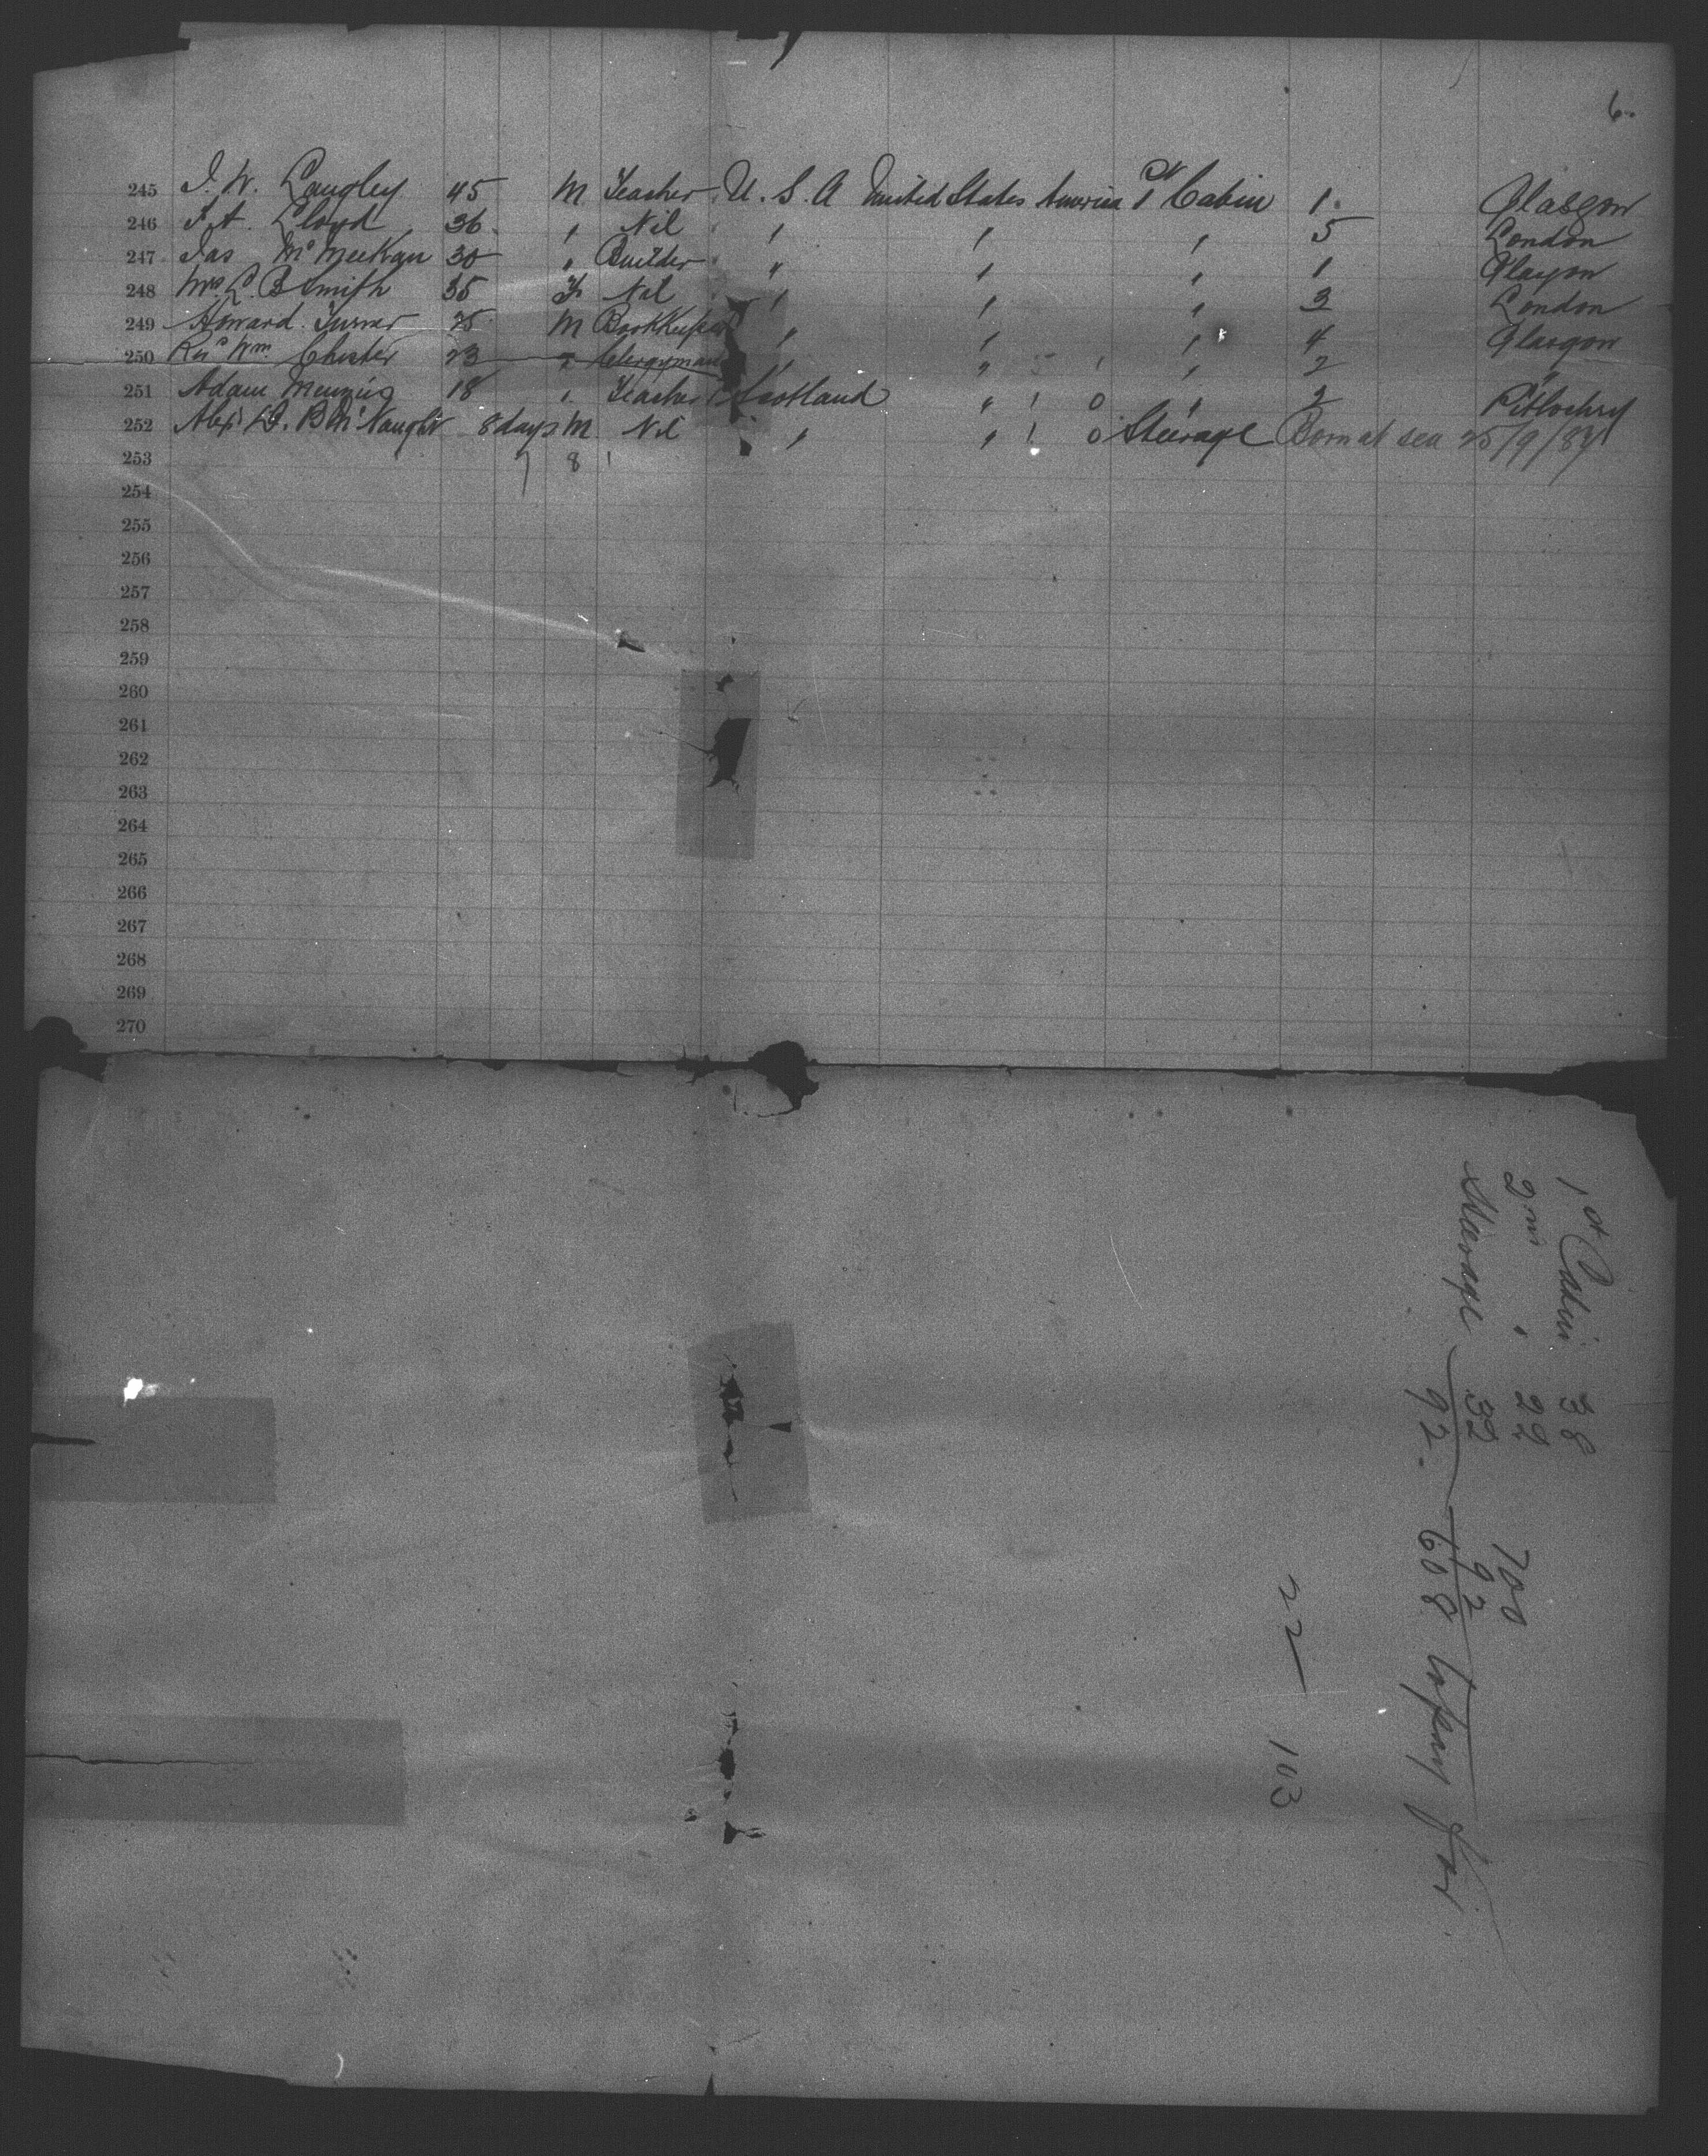 6.
245 J. W. Langley 45 M Teacher U. S. A United States America 1st Cabin 1. Glasgow
246 Lloyd 36 " Nil " " " 5 London
247 Jas McMeekan 30 " Builder " " " 1 Glasgow
248 Mrs L. B Smith 35 F Nil " " " 3 London
249 Howard Turner 25 M Bookkeeper " " " 4 Glasgow
250 Revd Wm Chester 23 " Clergyman " " " 2 "
251 Adam Menzies 18 " Teacher Scotland " 1 0 " 2 Pitlochry
252 Alexr D. B McNaught 8 days M Nil " " 1 0 Steerage Born at sea 25/9/87
253 7 8 1
254
255
256
257
258
259
260
261
262
263
264
265
266
267
268
269
270
1st Cabin 38
2nd " 22
Steerage 32
92.
700
92
608
22 — 103